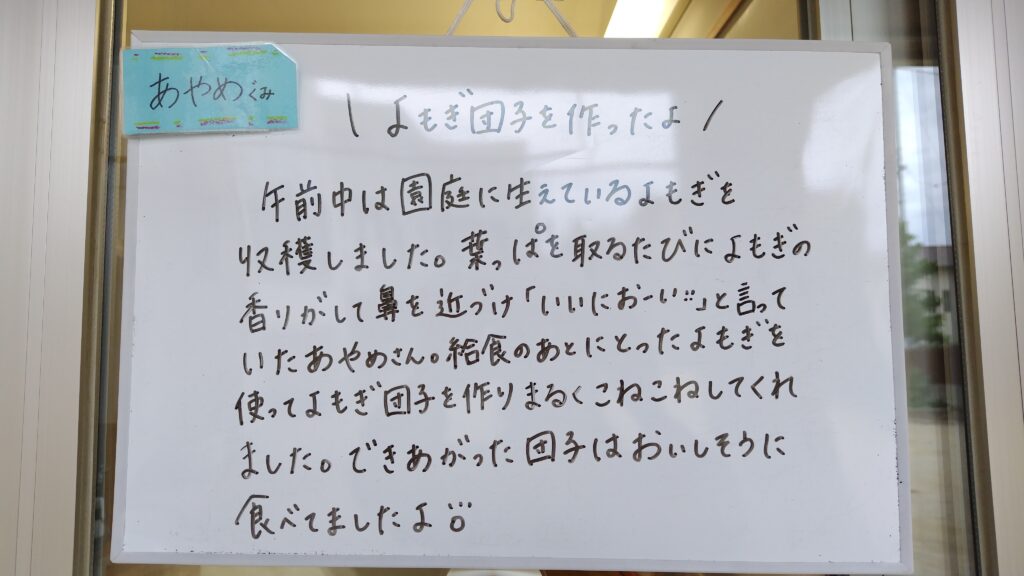 あやめぐみ
\ よもぎ団子を作ったよ /
午前中は園庭に生えているよもぎを
収穫しました。葉っぱを取るたびによもぎの
香りがして鼻を近づけ「いいにおーい」と言って
いたあやめさん。給食のあとにとったよもぎを
使ってよもぎ団子を作りまるくこねこねしてくれ
ました。できあがった団子はおいしそうに
食べてましたよ